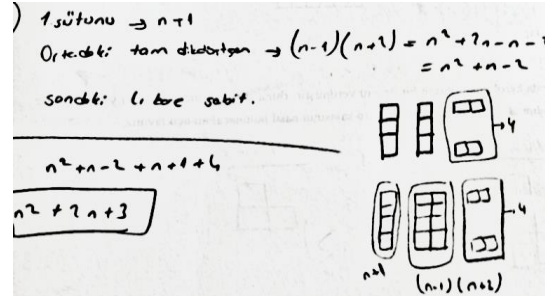 ) 1 sütunu → n+1
Ortadaki tam dikdörtgen → (n-1)(n+2) = n² + 2n - n - 2
= n² + n - 2
sondaki 4 tane sabit.
n² + n - 2 + n + 1 + 4
n² + 2n + 3
→4
→4
n+1
(n-1)(n+2)